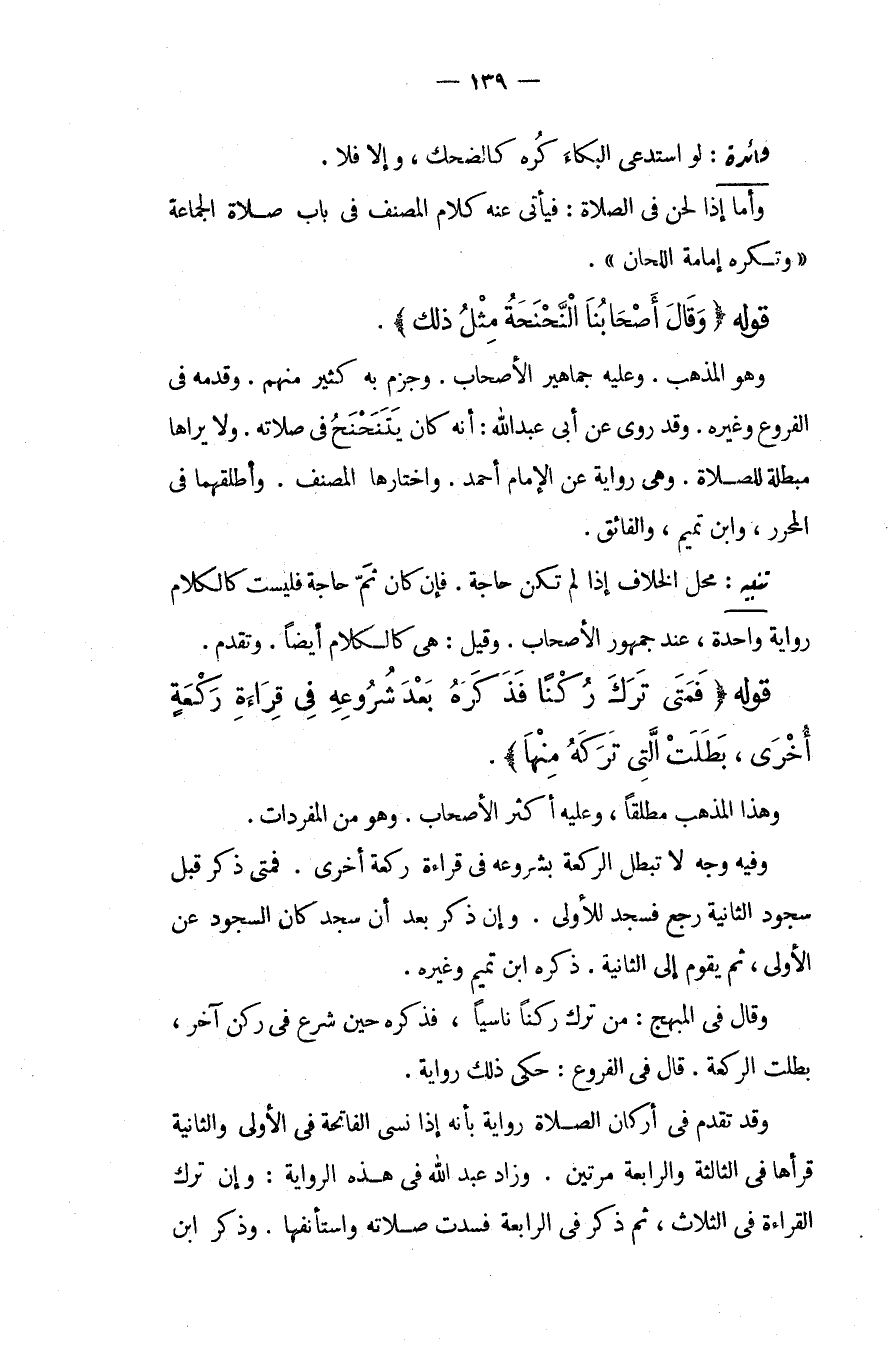 — ١٣٩ —
فائدة : لو استدعى البكاء كُره كالضحك ، وإلا فلا .
وأما إذا لحن فى الصلاة : فيأتى عنه كلام المصنف فى باب صلاة الجماعة
« وتكره إمامة اللحان » .
قوله ﴿ وَقَالَ أَصْحَابُنَا الْنَّحْنَحَةُ مِثْلُ ذلك ﴾ .
وهو المذهب . وعليه جماهير الأصحاب . وجزم به كثير منهم . وقدمه فى
الفروع وغيره . وقد روى عن أبى عبدالله : أنه كان يَتَنَحْنَحُ فى صلاته . ولا يراها
مبطلة للصلاة . وهى رواية عن الإمام أحمد . واختارها المصنف . وأطلقهما فى
المحرر ، وابن تميم ، والفائق .
تنبيه : محل الخلاف إذا لم تكن حاجة . فإن كان ثَمَّ حاجة فليست كالكلام
رواية واحدة ، عند جمهور الأصحاب . وقيل : هى كالكلام أيضاً . وتقدم .
قوله ﴿ فَمَتَى تَرَكَ رُكْنًا فَذَكَرَهُ بَعْدَ شُرُوعِهِ فِى قِرَاءَةِ رَكْعَةٍ
أُخْرَى ، بَطَلَتْ الَّتِى تَرَكَهُ مِنْهَا ﴾ .
وهذا المذهب مطلقاً ، وعليه أكثر الأصحاب . وهو من المفردات .
وفيه وجه لا تبطل الركعة بشروعه فى قراءة ركعة أخرى . فمتى ذكر قبل
سجود الثانية رجع فسجد للأولى . وإن ذكر بعد أن سجد كان السجود عن
الأولى ، ثم يقوم إلى الثانية . ذكره ابن تميم وغيره .
وقال فى المبهج : من ترك ركناً ناسياً ، فذكره حين شرع فى ركن آخر ،
بطلت الركعة . قال فى الفروع : حكى ذلك رواية .
وقد تقدم فى أركان الصلاة رواية بأنه إذا نسى الفاتحة فى الأولى والثانية
قرأها فى الثالثة والرابعة مرتين . وزاد عبد الله فى هذه الرواية : وإن ترك
القراءة فى الثلاث ، ثم ذكر فى الرابعة فسدت صلاته واستأنفها . وذكر ابن